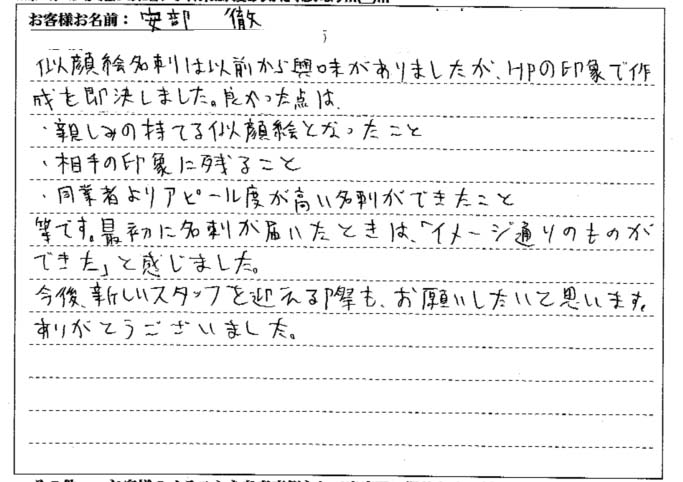 お客様お名前： 安部 徹
似顔絵名刺は以前から興味がありましたが、HPの印象で作
成を即決しました。良かった点は、
・親しみの持てる似顔絵となったこと
・相手の印象に残ること
・同業者よりアピール度が高い名刺ができたこと
等です。最初に名刺が届いたときは、「イメージ通りのものが
できた」と感じました。
今後、新しいスタッフを迎える際も、お願いしたいと思います。
ありがとうございました。